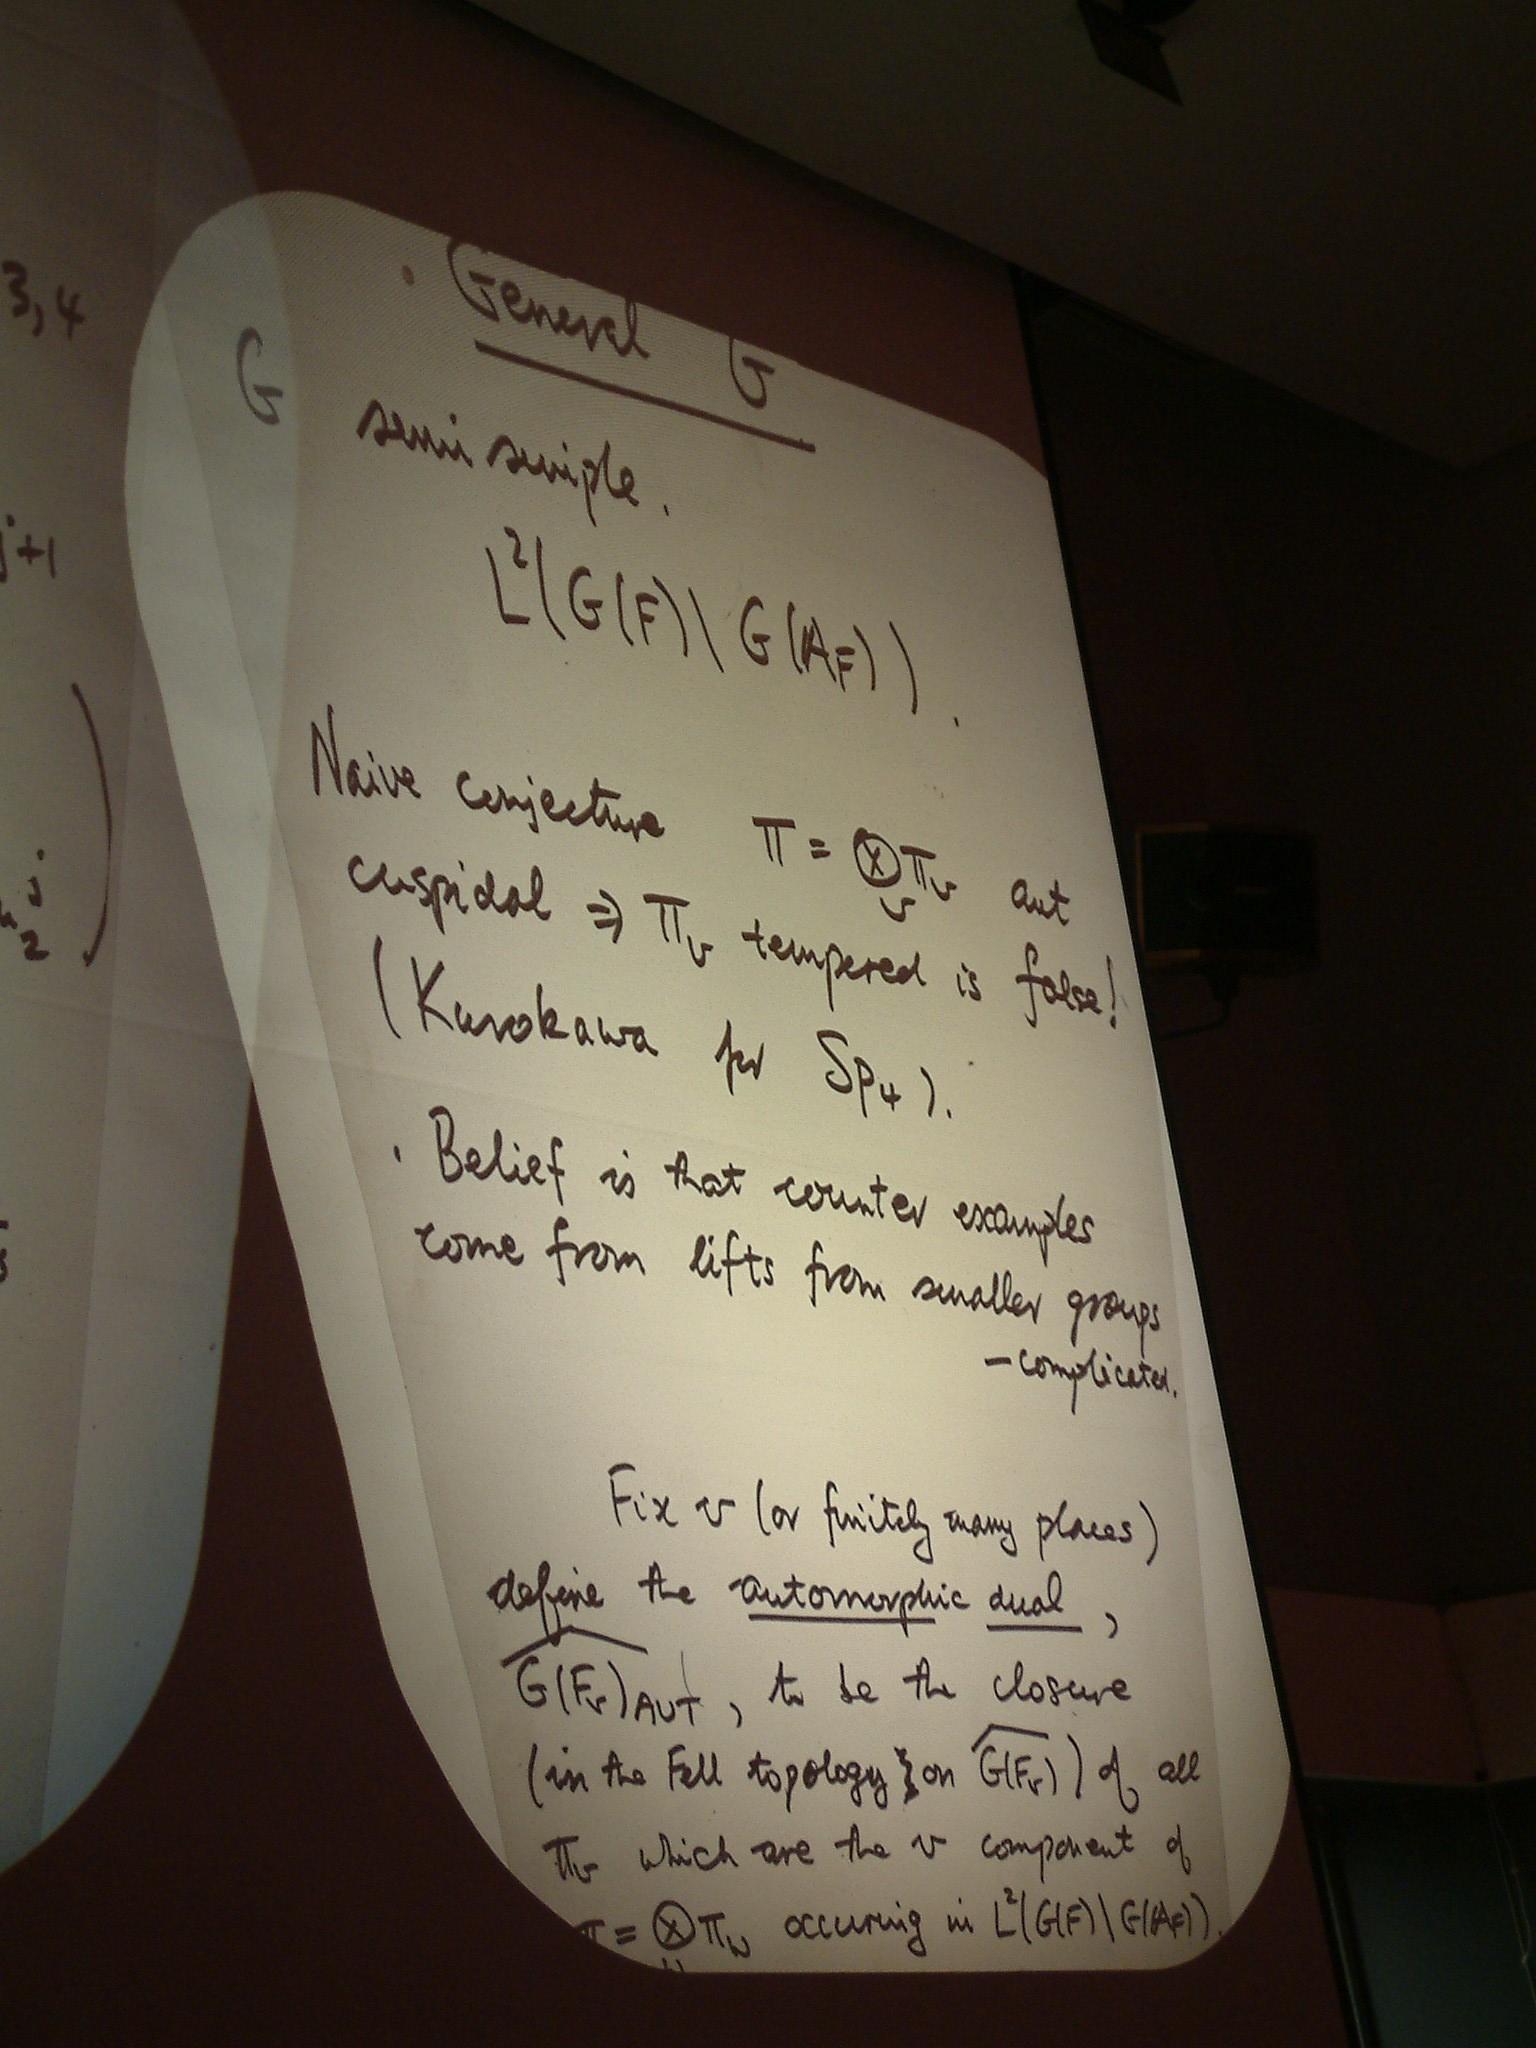 3, 4
j+1
j
2
· General G
G semi simple.
L²(G(F)\G(𝔸_F)).
Naive conjecture π = ⊗_v π_v aut
cuspidal ⇒ π_v tempered is false!
(Kurokawa for Sp₄).
· Belief is that counter examples
come from lifts from smaller groups
— complicated.
Fix v (or finitely many places)
define the automorphic dual,
\widehat{G(F_v)}_{AUT}, to be the closure
(in the Fell topology } on \widehat{G(F_v)}) of all
π_v which are the v component of
π = ⊗ π_w occuring in L²(G(F)\G(𝔸_F)).